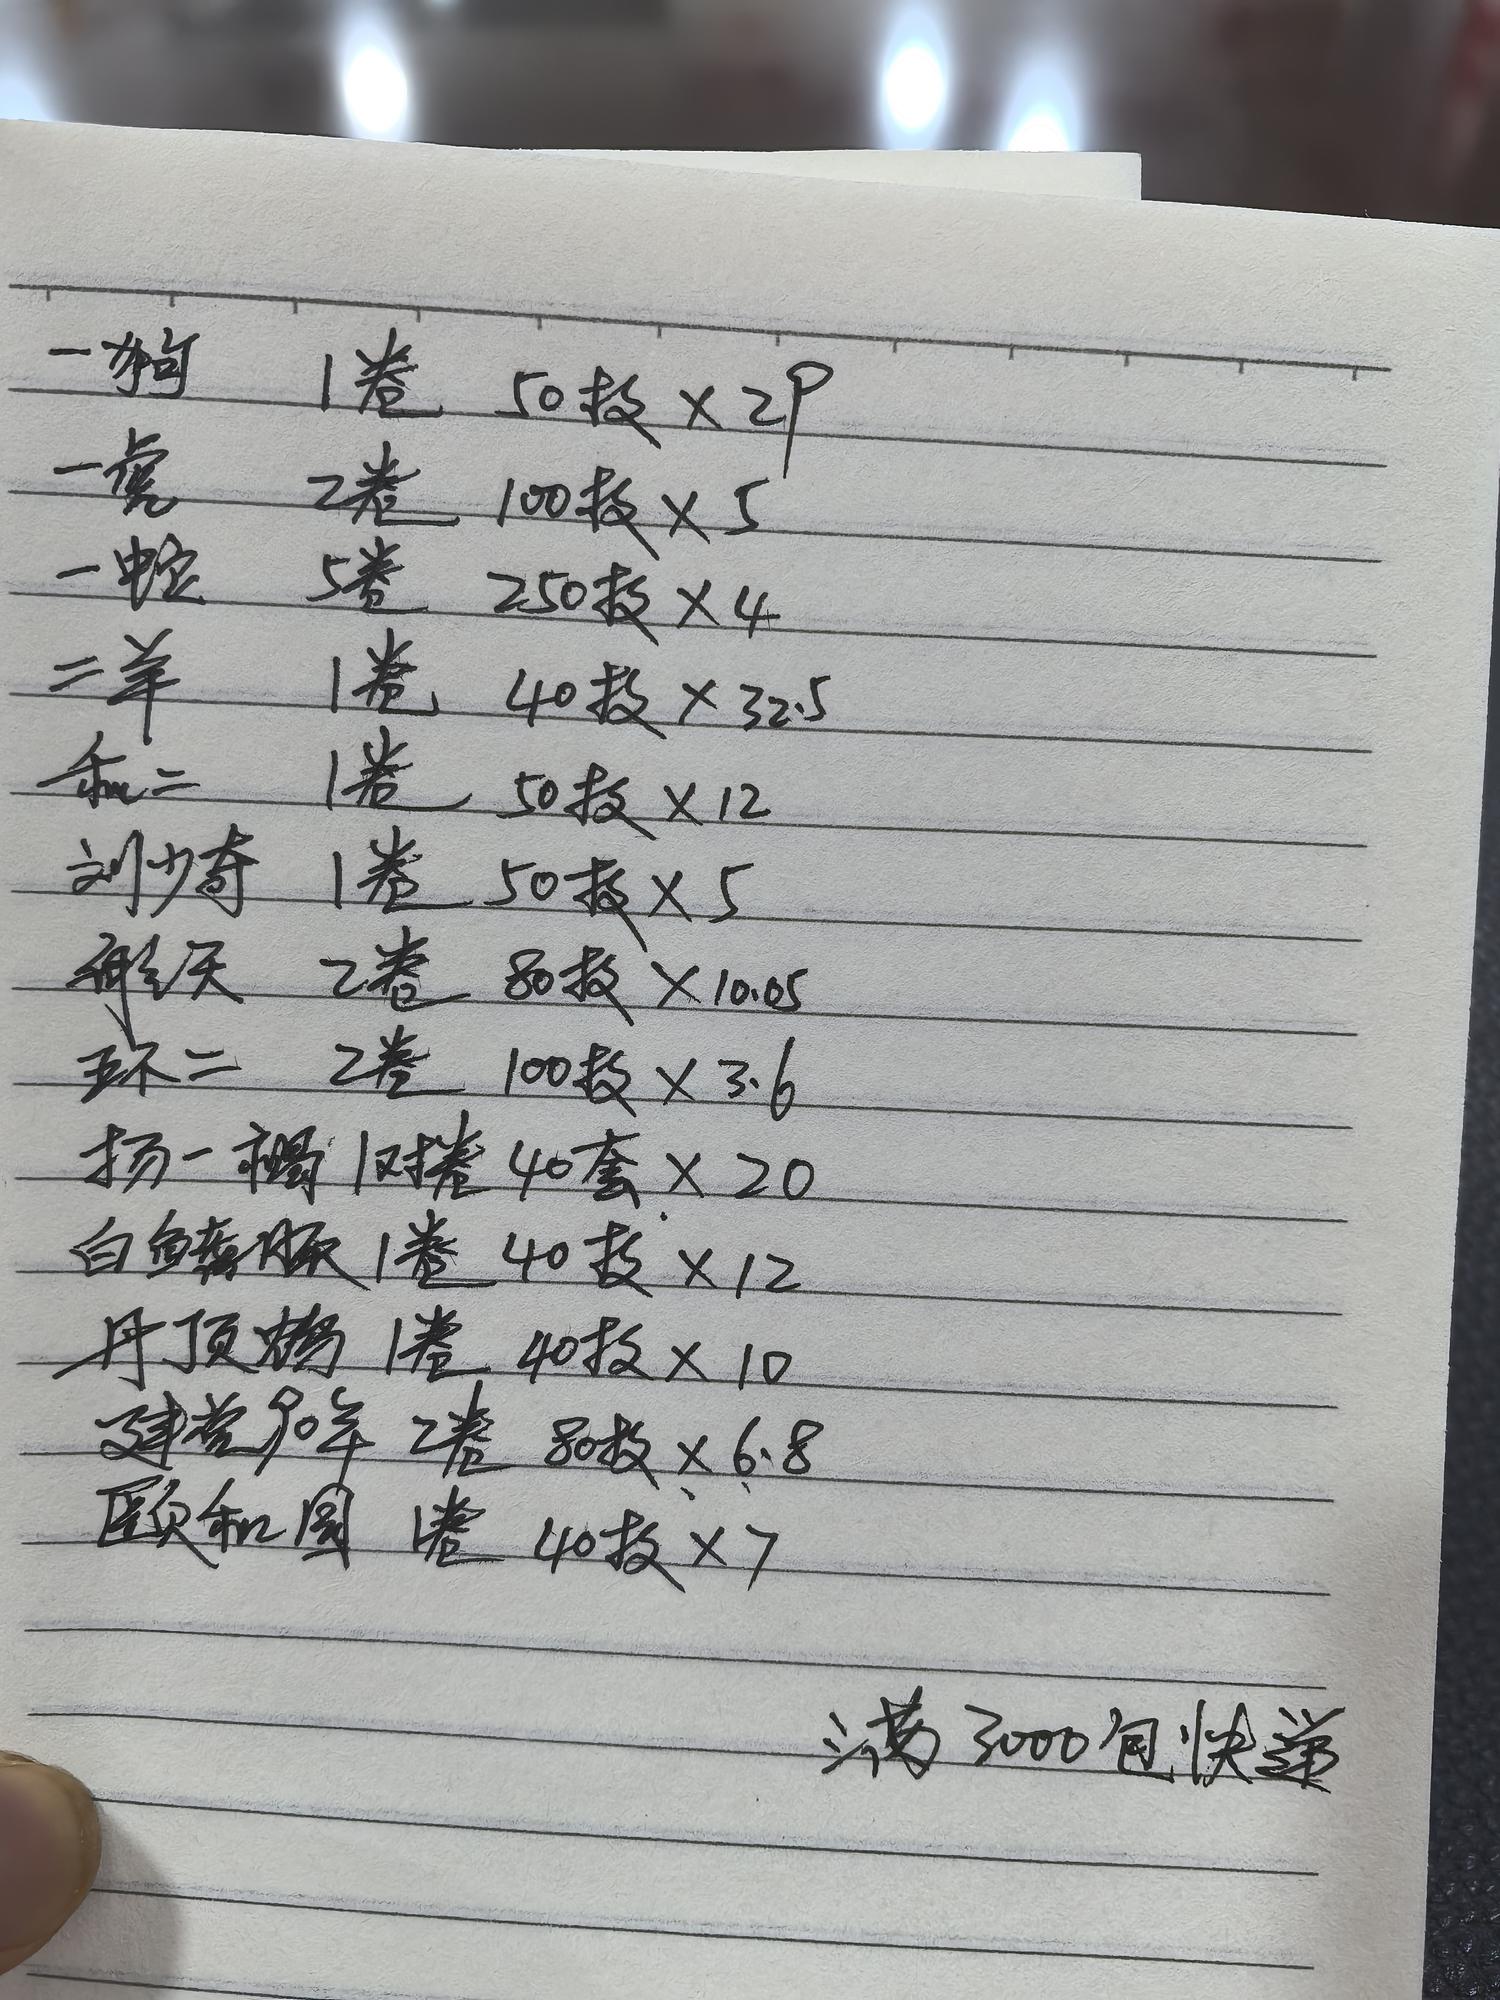 一狗 1卷 50枚×29
一虎 2卷 100枚×5
一蛇 5卷 250枚×4
二羊 1卷 40枚×32.5
和二 1卷 50枚×12
刘少奇 1卷 50枚×5
航天 2卷 80枚×10.05
环二 2卷 100枚×3.6
扬一褐 1对卷 40套×20
白鳍豚 1卷 40枚×12
丹顶鹤 1卷 40枚×10
建党90年 2卷 80枚×6.8
颐和园 1卷 40枚×7
满3000包快递